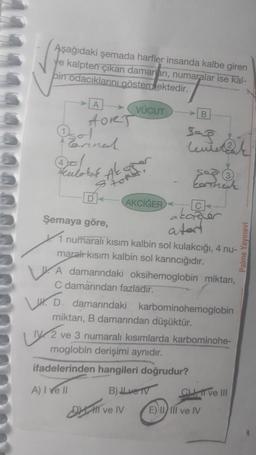 Aşağıdaki şemada harfler insanda kalbe giren
ve kalpten çıkan damarları, numaralar ise kal-
bin odacıklarını göstermektedir.
A
VÜCUT
B
Aort
1
sol
2
4
sağ
3
D
AKCİĞER
C
akciğer
Şemaya göre,
I. 1 numaralı kısım kalbin sol kulakcığı, 4 nu-
maralı kısım kalbin sol karıncığıdır.
II. A damarındaki oksihemoglobin miktarı,
C damarından fazladır.
III. D damarındaki karbominohemoglobin
miktarı, B damarından düşüktür.
IV. 2 ve 3 numaralı kısımlarda karbominohe-
moglobin derişimi aynıdır.
ifadelerinden hangileri doğrudur?
A) I ve II
B) II ve IV
C) I, II ve III
D) I, III ve IV
E) II, III ve IV
Palme Yayınevi